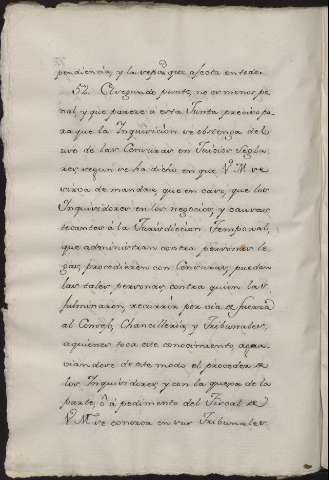 pendiencia, y la repa.ª que afecta en todo.
52. El segundo punto, no es menos pe-
nal, y que parece a esta Junta preciso pa-
ra que la Inquisicion se abstenga del
uso de las Censuras en Juicios Segla-
res segun se ha dicho en que V. M. se
sirva de mandar, que en caso, que los
Inquisidores en los negocios, y causas
tocantes á la Jurisdicion Temporal,
que administran contra personas le-
gas, procedieren con Censuras, puedan
las tales personas contra quien las
fulminaron, recurrir por via de fuerza
al Consejo, Chancilleria, y Tribunales,
aquienes toca este conocimiento, agra-
viandose de este modo el proceder de
los Inquisidores, y con la quexa de la
parte, ó á pedimento del Fiscal de
V. M. se conozca en sus Tribunales